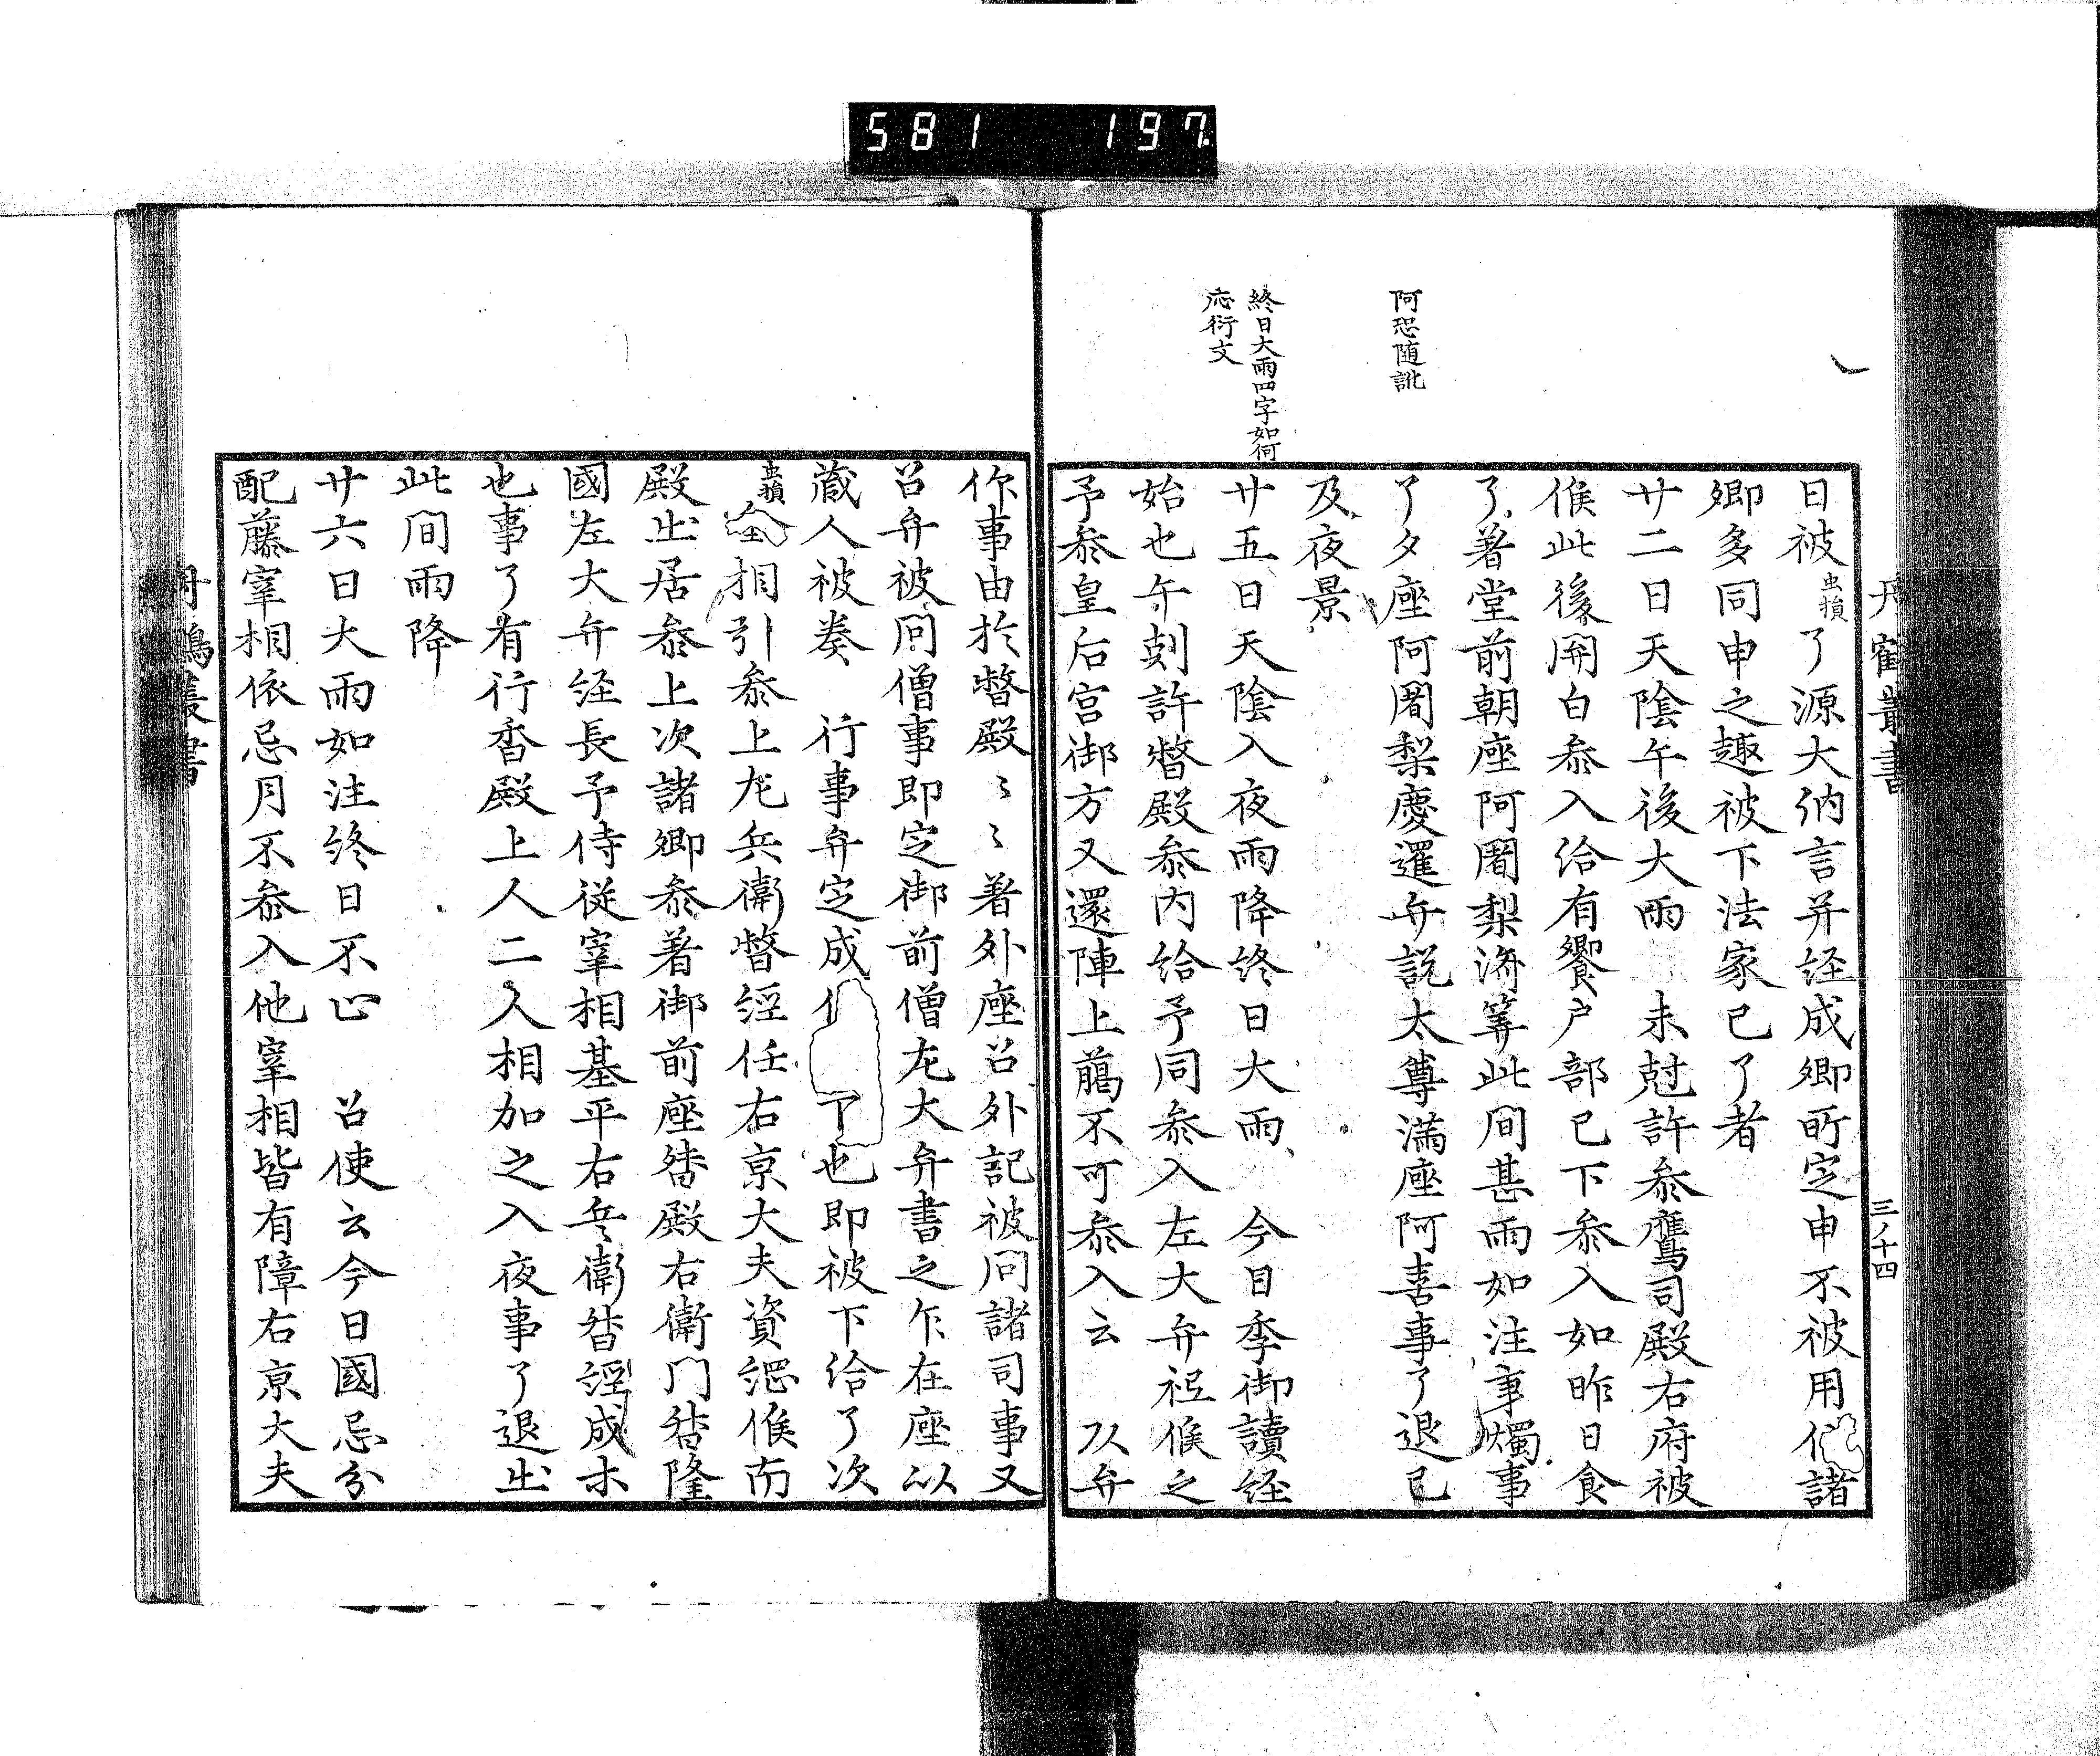 581 197
丹鶴叢書
三ノ十四
阿恐随訛
終日大雨四字如何
応衍文
日被虫損了源大納言并経成卿所定申不被用 諸
卿多同申之趣被下法家已了者
廿二日天陰午後大雨 未剋許参鷹司殿右府被
候此後開白参入給有饗戸部已下参入如昨日食
了著堂前朝座阿闍梨済筭此間甚雨如注事燭事
了夕座阿闍梨慶暹弁説太尊満座阿喜事了退已
及夜景
廿五日天陰入夜雨降終日大雨 今日季御讀経
始也午剋許督殿参内給予同参入左大弁祗候之
予参皇后宮御方又還陣上﨟不可参入云 以弁
作事由於督殿〻〻著外座召外記被问諸司事又
召弁被问僧事即定御前僧左大弁書之乍在座以
蔵人被奏 行事弁定成 了也即被下給了次
虫損 相引参上左兵衛督経任右京大夫資綱候南
殿出居参上次諸卿参著御前座督殿右衛门督隆
國左大弁経長予侍従宰相基平右兵衛督経成木
也事了有行香殿上人二人相加之入夜事了退出
此间雨降
廿六日大雨如注終日不止 召使云今日國忌分
配藤宰相依忌月不参入他宰相皆有障右京大夫
丹鶴叢書